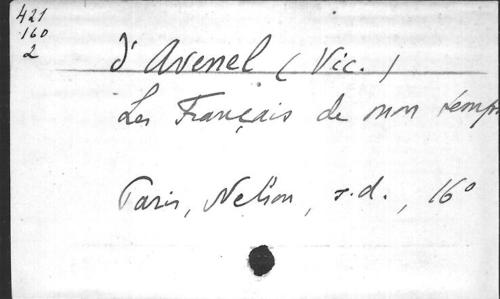 421
160
2
d'Avenel (Vic.)
Les Français de mon temps
Paris, Nelson, s.d., 16°